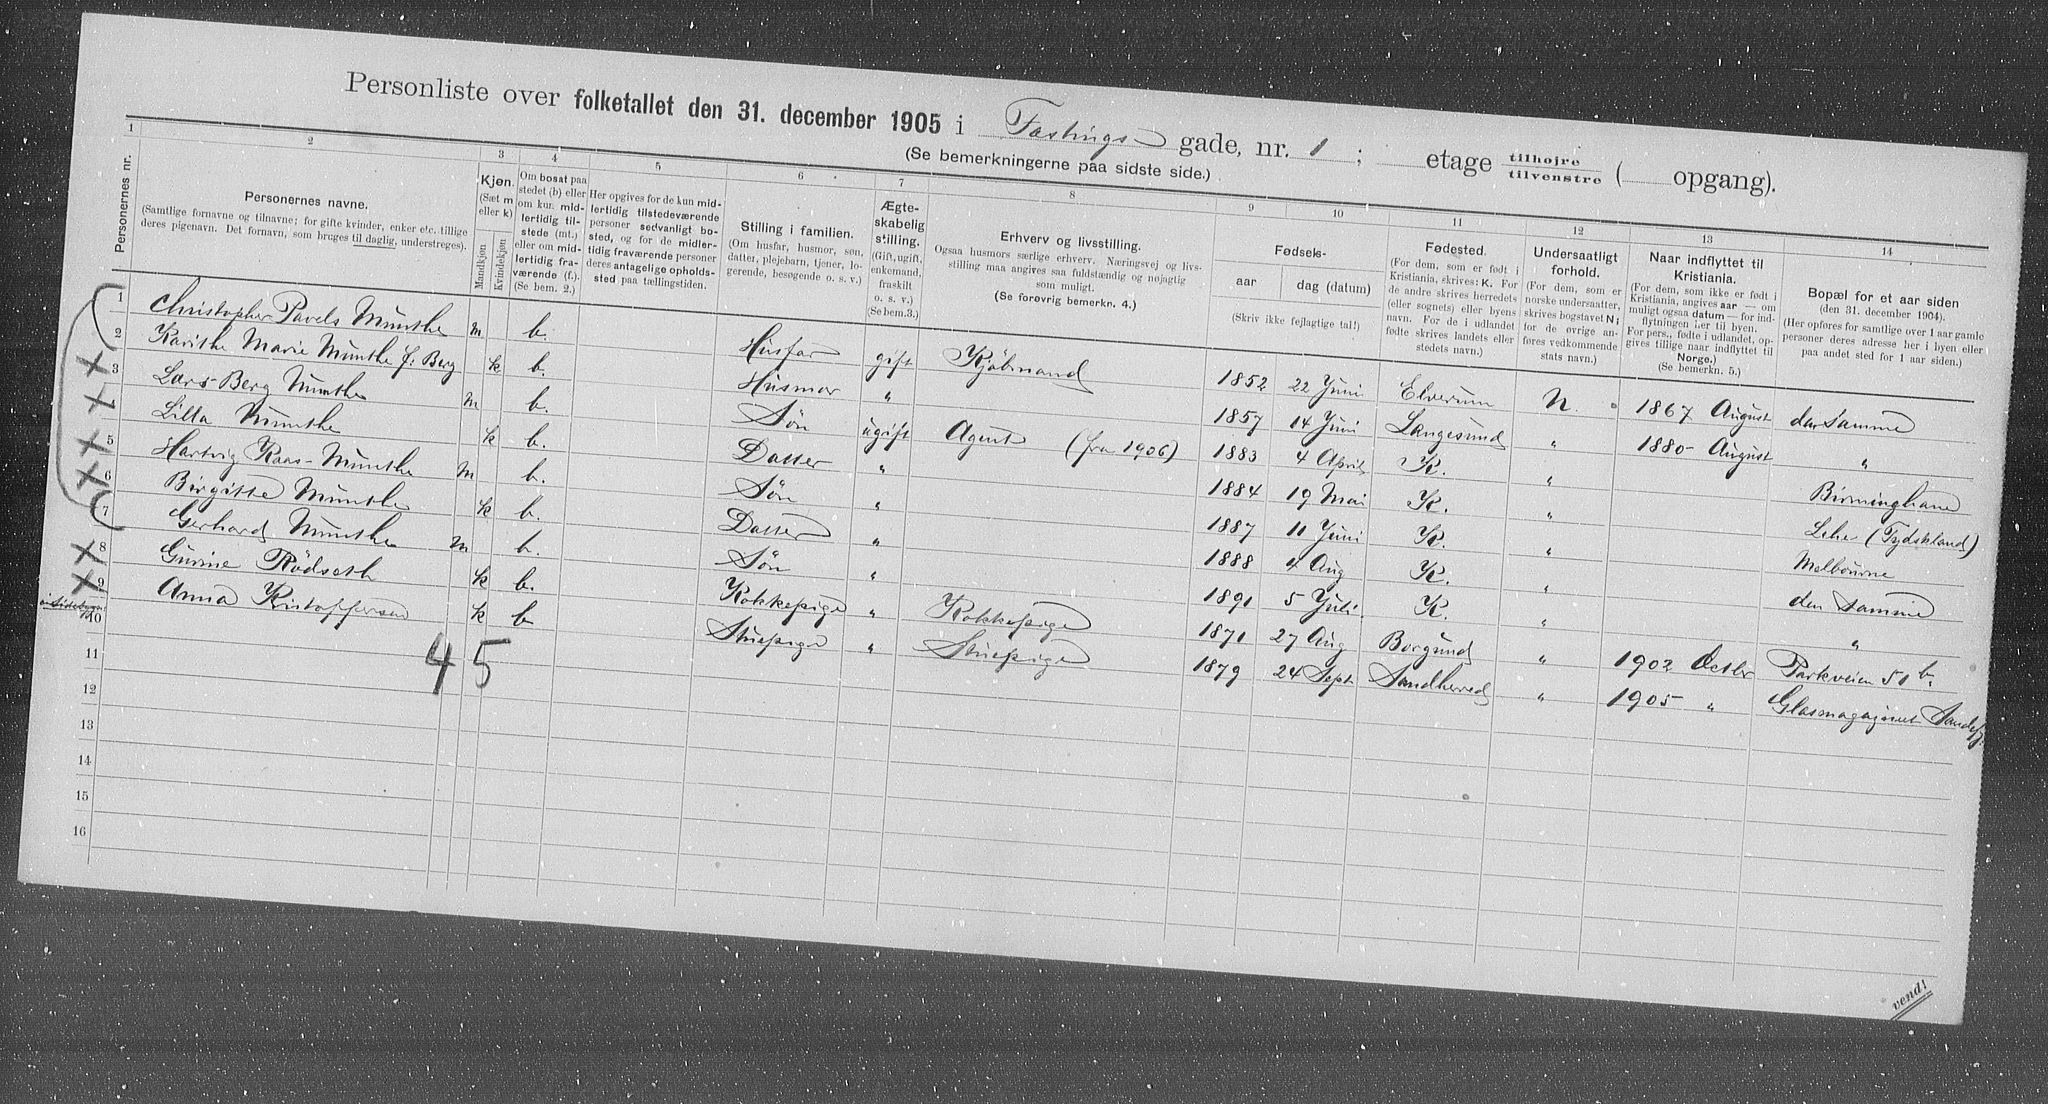 Personliste over folketallet den 31. december 1905 i Fastings gade, nr. 1 ; etage tilhøjre tilvenstre ( opgang).
(Se bemerkningerne paa sidste side.)
1 2 3 4 5 6 7 8 9 10 11 12 13 14
Personernes nr.
Personernes navne.
(Samtlige fornavne og tilnavne; for gifte kvinder, enker etc. tillige deres pigenavn. Det fornavn, som bruges til daglig, understreges).
Kjøn.
(Sæt m eller k)
Mandkjøn
Kvindekjøn
Om bosat paa stedet (b) eller om kun midlertidig tilstede (mt.) eller om midlertidig fraværende (f.). (Se bem. 2.)
Her opgives for de kun midlertidig tilstedeværende personer sedvanligt bosted, og for de midlertidig fraværende personer deres antagelige opholdssted paa tællingstiden.
Stilling i familien.
(Om husfar, husmor, søn, datter, plejebarn, tjener, logerende, besøgende o. s. v.)
Ægteskabelig stilling.
(Gift, ugift, enkemand, fraskilt o. s. v.) (Se bem.3.)
Erhverv og livsstilling.
Ogsaa husmors særlige erhverv. Næringsvej og livsstilling maa angives saa fuldstændig og nøjagtig som muligt.
(Se forøvrig bemerkn. 4.)
Fødsels-
aar dag (datum)
(Skriv ikke fejlagtige tal!)
Fødested.
(For dem, som er født i Kristiania, skrives: K. For de andre skrives herredets (eller sognets) eller byens navn. For de i udlandet fødte skrives landets eller stedets navn.)
Undersaatligt forhold.
(For dem, som er norske undersaatter, skrives bogstavet N; for de øvrige anføres vedkommende stats navn.)
Naar indflyttet til Kristiania.
(For dem, som ikke er født i Kristiania, angives aar — om muligt ogsaa datum — for indflytningen her til byen. For pers., fødte i udlandet, opgives tillige naar indflyttet til Norge.)
(Se bemerkn. 5.)
Bopæl for et aar siden
(den 31. december 1904).
(Her opføres for samtlige over 1 aar gamle personer deres adresse her i byen eller paa andet sted for 1 aar siden.)
1 Christopher Pavels Munthe m b. Husfar gift Kjöbmand 1852 22 Juni Elverum N. 1867 August den Samme
2 Karithe Marie Munthe f. Berg k b. Husmor " 1857 14 Juni Langesund " 1880 August "
3 Lars Berg Munthe m b. Søn ugift Agent (fra 1906) 1883 4 April K. " Birmingham
4 Lilla Munthe k b. Datter " 1884 19 Mai K. " Lehe (Tydskland)
5 Hartvig Kaas Munthe m b. Søn " 1887 11 Juni K. " Melbourne
6 Birgitte Munthe k b. Datter " 1888 4 Aug K. " den Samme
7 Gerhard Munthe m b. Søn " 1891 5 Juli K. " "
8 Gurine Rödseth k b. Kokkepige " Kokkepige 1871 27 Aug Borgund " 1902 Octbr Parkveien 51 b.
9 Anna Kristoffersen k b Stuepige " Stuepige 1879 24 Sept Sandherred " 1905 " Glasmagazinet Sandefj.
10
4 5
11
12
13
14
15
16
vend!